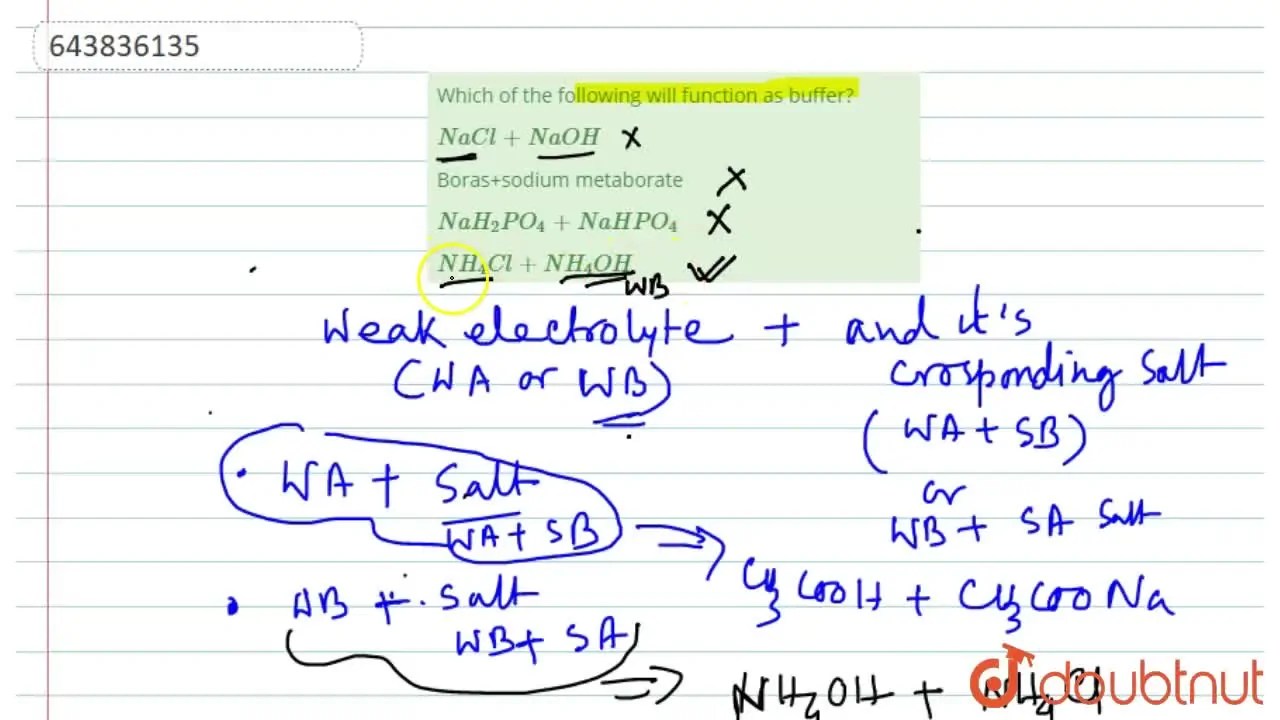 643836135
Which of the following will function as buffer?
NaCl + NaOH X
Boras+sodium metaborate X
NaH₂PO₄ + NaHPO₄ X
NH₄Cl + NH₄OH ✓
WB
Weak electrolyte + and it's
(WA or WB) crosponding Salt
(WA + SB)
• WA + Salt or
WA + SB WB + SA Salt
CH₃COOH + CH₃COONa
• WB + Salt
WB + SA
NH₄OH + NH₄Cl
doubtnut